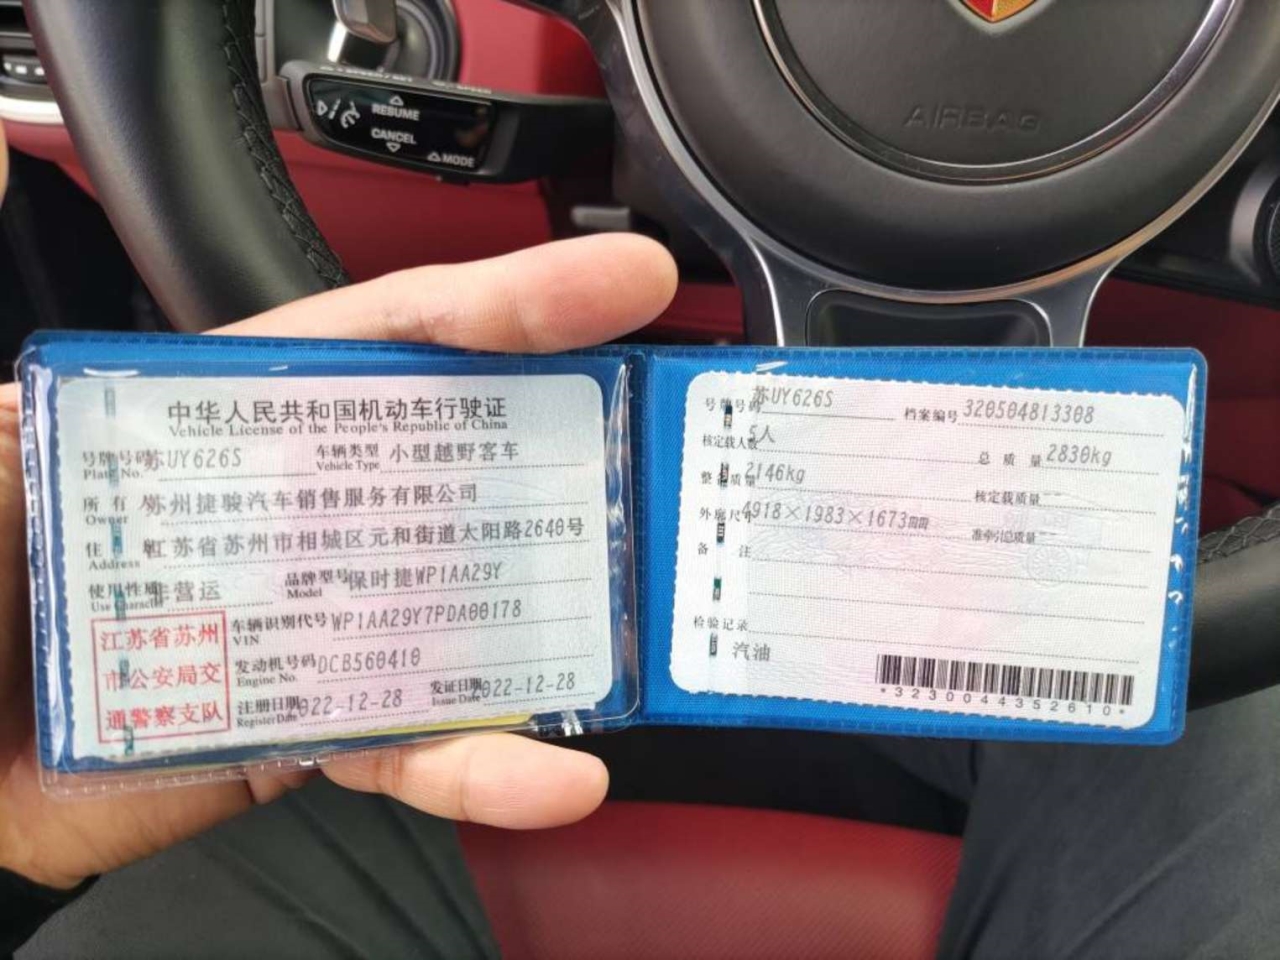 RESUME
CANCEL
MODE
AIRBAG
中华人民共和国机动车行驶证
Vehicle License of the People's Republic of China
号牌号码 苏UY626S 车辆类型 小型越野客车
Plate No. Vehicle Type
所有人 苏州捷骏汽车销售服务有限公司
Owner
住址 江苏省苏州市相城区元和街道太阳路2640号
Address
使用性质 非营运 品牌型号 保时捷WP1AA29Y
Use Character Model
江苏省苏州
市公安局交
通警察支队
车辆识别代号 WP1AA29Y7PDA00178
VIN
发动机号码 DCB560410
Engine No.
注册日期 2022-12-28 发证日期 2022-12-28
Register Date Issue Date
号牌号码 苏UY626S 档案编号 320504813308
核定载人数 5人 总质量 2830kg
整备质量 2146kg 核定载质量 --
外廓尺寸 4918×1983×1673mm 准牵引总质量 --
备注
检验记录
汽油
*3230044352610*